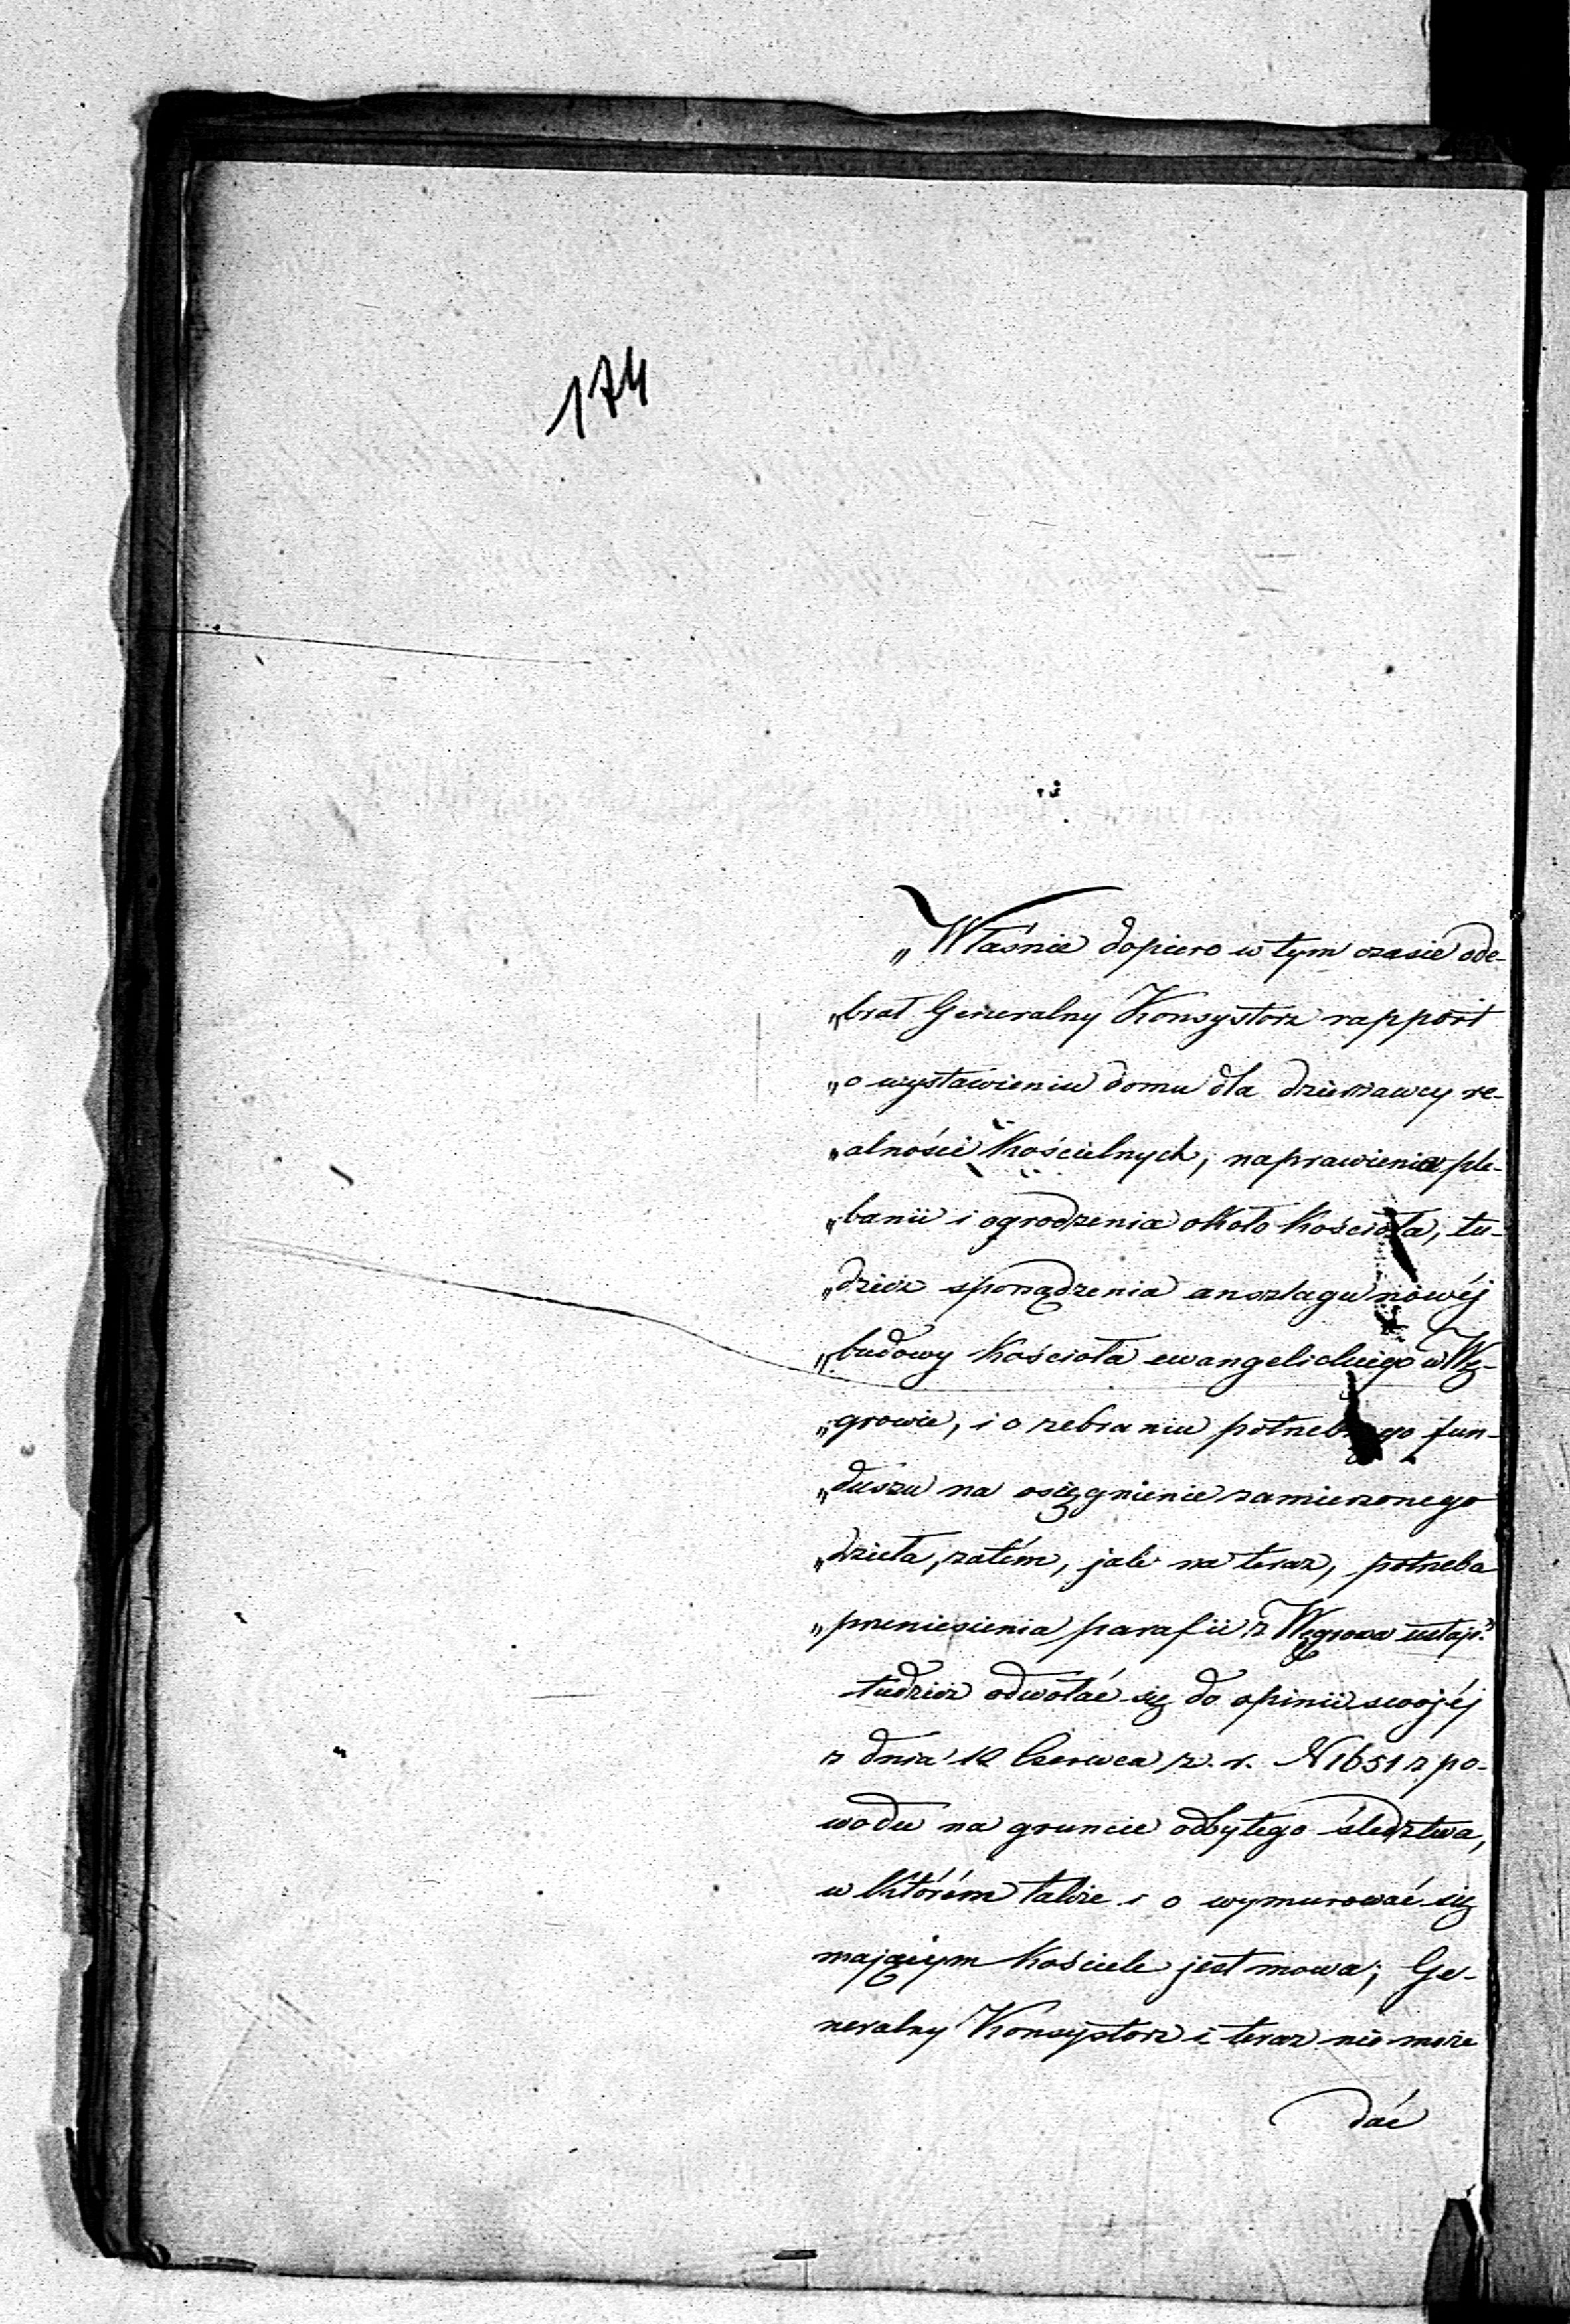 174
„Właśnie dopiero w tym czasie ode-
„brał Generalny Konsystorz rapport
„o wystawieniu domu dla dzierzawcy re-
„alności Kościelnych, naprawienia ple-
„banii i ogrodzenia około Kościoła, tu-
„dzież sporządzenia anszlagu nowéj
„budowy Kościoła ewangelickiego w Wę-
„growie, i o zebraniu potrzebnego fun-
„duszu na osięgnienie zamierzonego
„dzieła, zatém, jak na teraz, potrzeba
„przeniesienia parafii z Węgrowa ustaje."
tudzież odwołać się do opinii swojéj
z dnia 12 Czerwca z. r. N 1651 z po-
wodu na gruncie odbytego śledztwa,
w którém także i o wymurować się
mającym Kościele jest mowa; Ge-
neralny Konsystorz i teraz nie może
dać